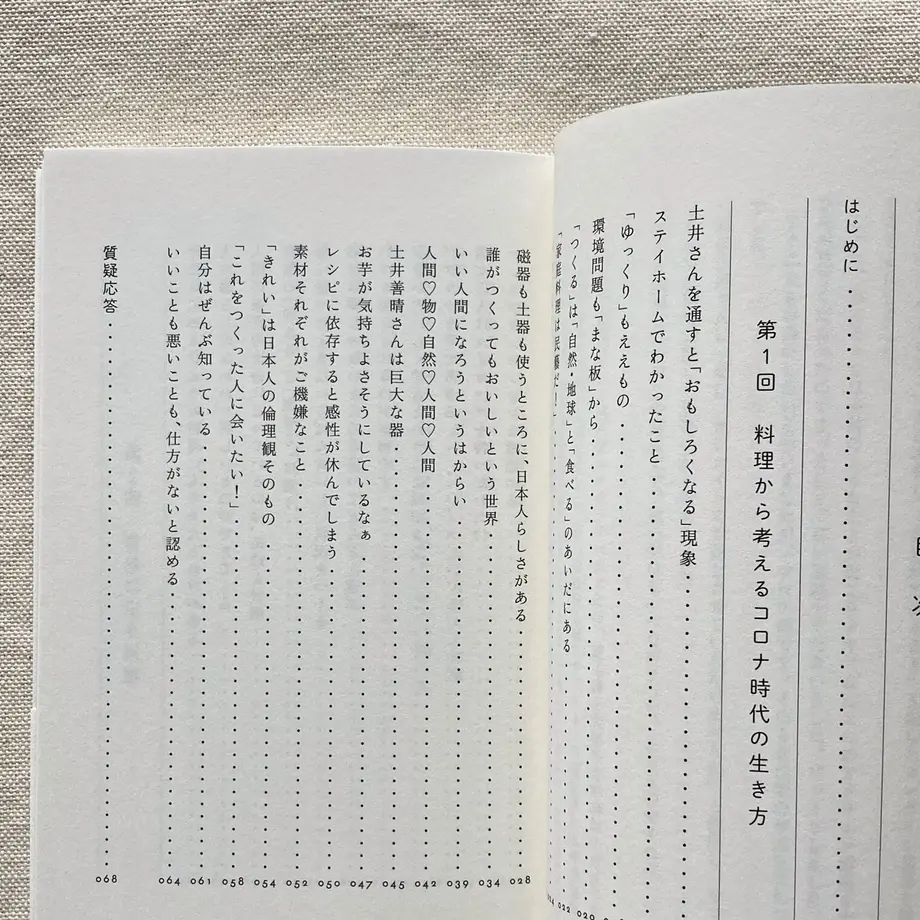 次
はじめに
第1回 料理から考えるコロナ時代の生き方
土井さんを通すと「おもしろくなる」現象
ステイホームでわかったこと
「ゆっくり」もええもの
環境問題も「まな板」から 020
「つくる」は「自然・地球」と「食べる」のあいだにある 022
「家庭料理は民藝だ!」
磁器も土器も使うところに、日本人らしさがある 028
誰がつくってもおいしいという世界 034
いい人間になろうというはからい 039
人間♡物♡自然♡人間♡人間 042
土井善晴さんは巨大な器 045
お芋が気持ちよさそうにしているなぁ 047
レシピに依存すると感性が休んでしまう 050
素材それぞれがご機嫌なこと 052
「きれい」は日本人の倫理観そのもの 054
「これをつくった人に会いたい!」 058
自分はぜんぶ知っている 061
いいことも悪いことも、仕方がないと認める 064
質疑応答 068